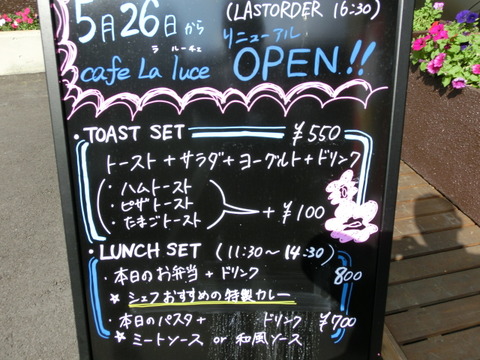 (LASTORDER 16:30)
5月26日から リニューアル
ラ ルーチェ
cafe La luce OPEN!!
・TOAST SET ¥550
トースト+サラダ+ヨーグルト+ドリンク
・ハムトースト
・ピザトースト
・たまごトースト
+¥100
・LUNCH SET (11:30〜14:30)
・本日のお弁当+ドリンク 800
☆シェフおすすめの特製カレー
・本日のパスタ+ ドリンク ¥700
☆ミートソース or 和風ソース